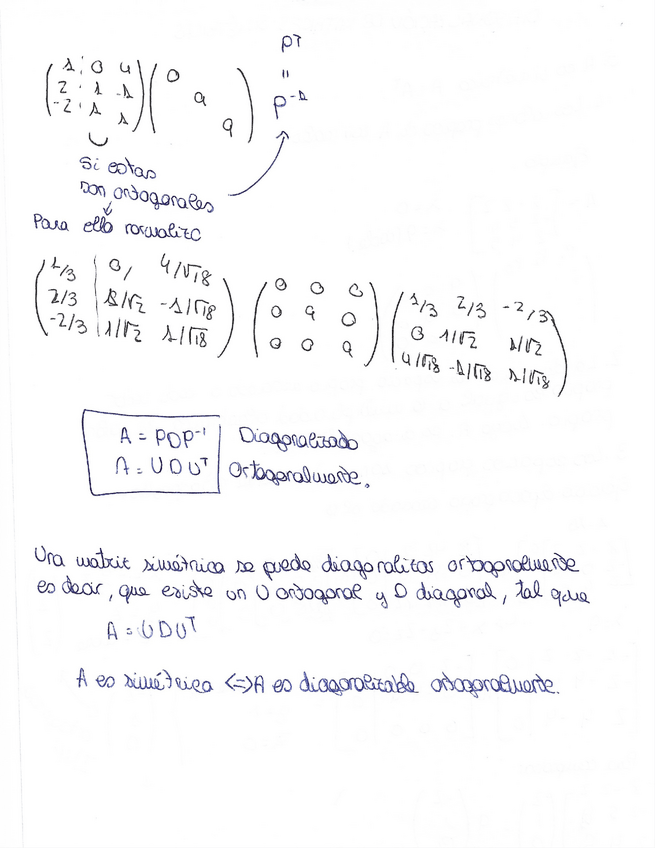 pT
"
1 0 4
2 1 -1 P-1
-2 1 1
0
9
9
Si estas
son ortogonales
Para ello normalizo
1/3 0 4/√18 0 0 0 1/3 2/3 -2/3
2/3 1/√2 -1/√18 0 9 0 0 1/√2 1/√2
-2/3 1/√2 1/√18 0 0 9 4/√18 -1/√18 1/√18
A = PDP-1 Diagonalizado
A = UDUT Ortogonalmente.
Una matriz simétrica se puede diagonalizar ortogonalmente
es decir, que existe un U ortogonal y D diagonal, tal que
A = UDUT
A es simétrica <=> A es diagonalizable ortogonalmente.